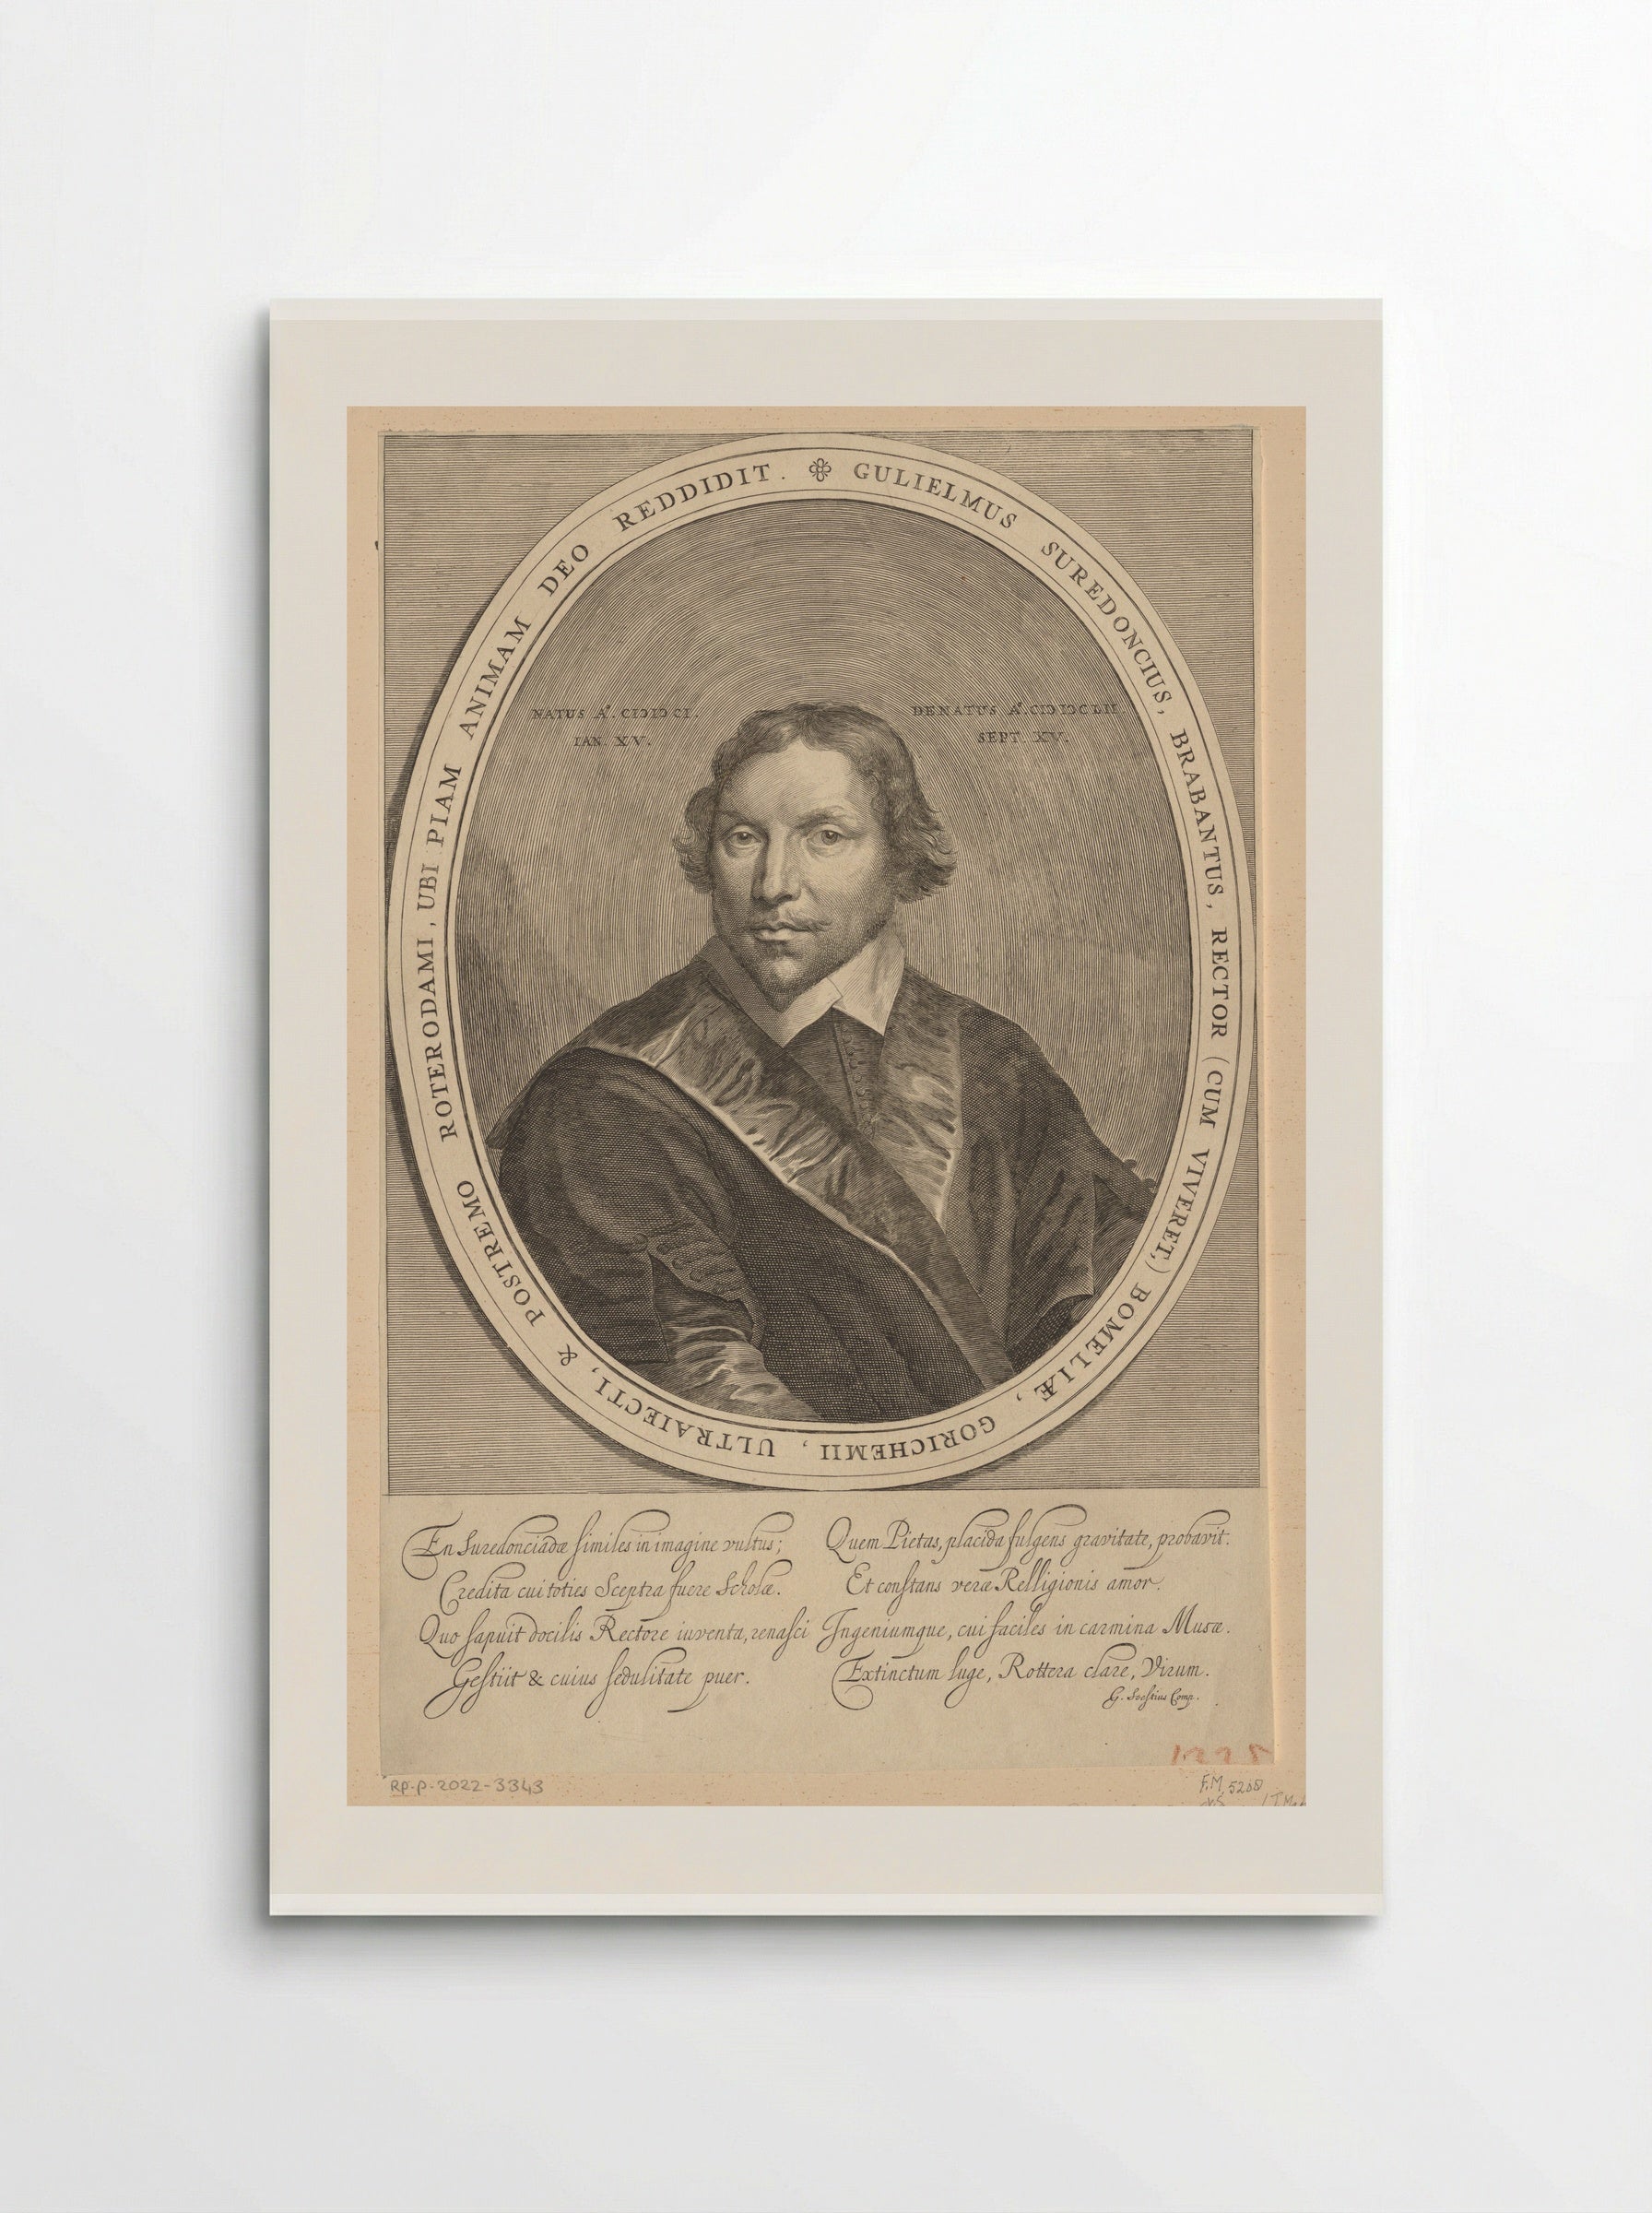 GULIELMUS SUREDONCIUS, BRABANTUS, RECTOR (CUM VIVERET,) BOMELIÆ, GORICHEMII, ULTRAIECTI, & POSTREMO ROTERODAMI, UBI PIAM ANIMAM DEO REDDIDIT.
NATUS Aº. CIↃIↃCI.
IAN. XV.
DENATUS Aº. CIↃIↃCLII
SEPT. XV.
En Suredonciadæ similes in imagine vultus;
Credita cui toties Sceptra fuere Scholæ.
Quo sapuit docilis Rectore iuventa, renasci
Gestiit & cuius sedulitate puer.
Quem Pietas, placida fulgens gravitate, probavit.
Et constans veræ Relligionis amor.
Ingeniumque, cui faciles in carmina Musæ.
Extinctum luge, Rottera clare, Virum.
G. Soestius Comp.
RP-P-2022-3343
F.M. 5208